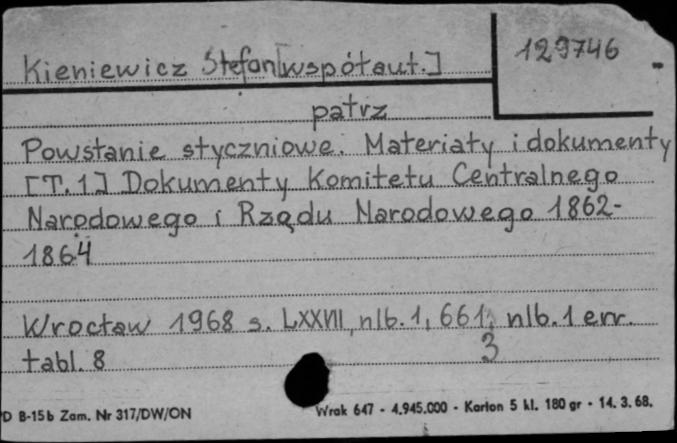 129746
Kieniewicz Stefan [współaut.]
patrz
Powstanie styczniowe. Materiały i dokumenty
[T. 1] Dokumenty Komitetu Centralnego
Narodowego i Rządu Narodowego 1862-
1864
Wrocław 1968 s. LXXVII, nlb. 1, 661, nlb. 1 err.
3
tabl. 8
D B-15b Zam. Nr 317/DW/ON
Wrak 647 - 4.945.000 - Karton 5 kl. 180 gr - 14. 3. 68.